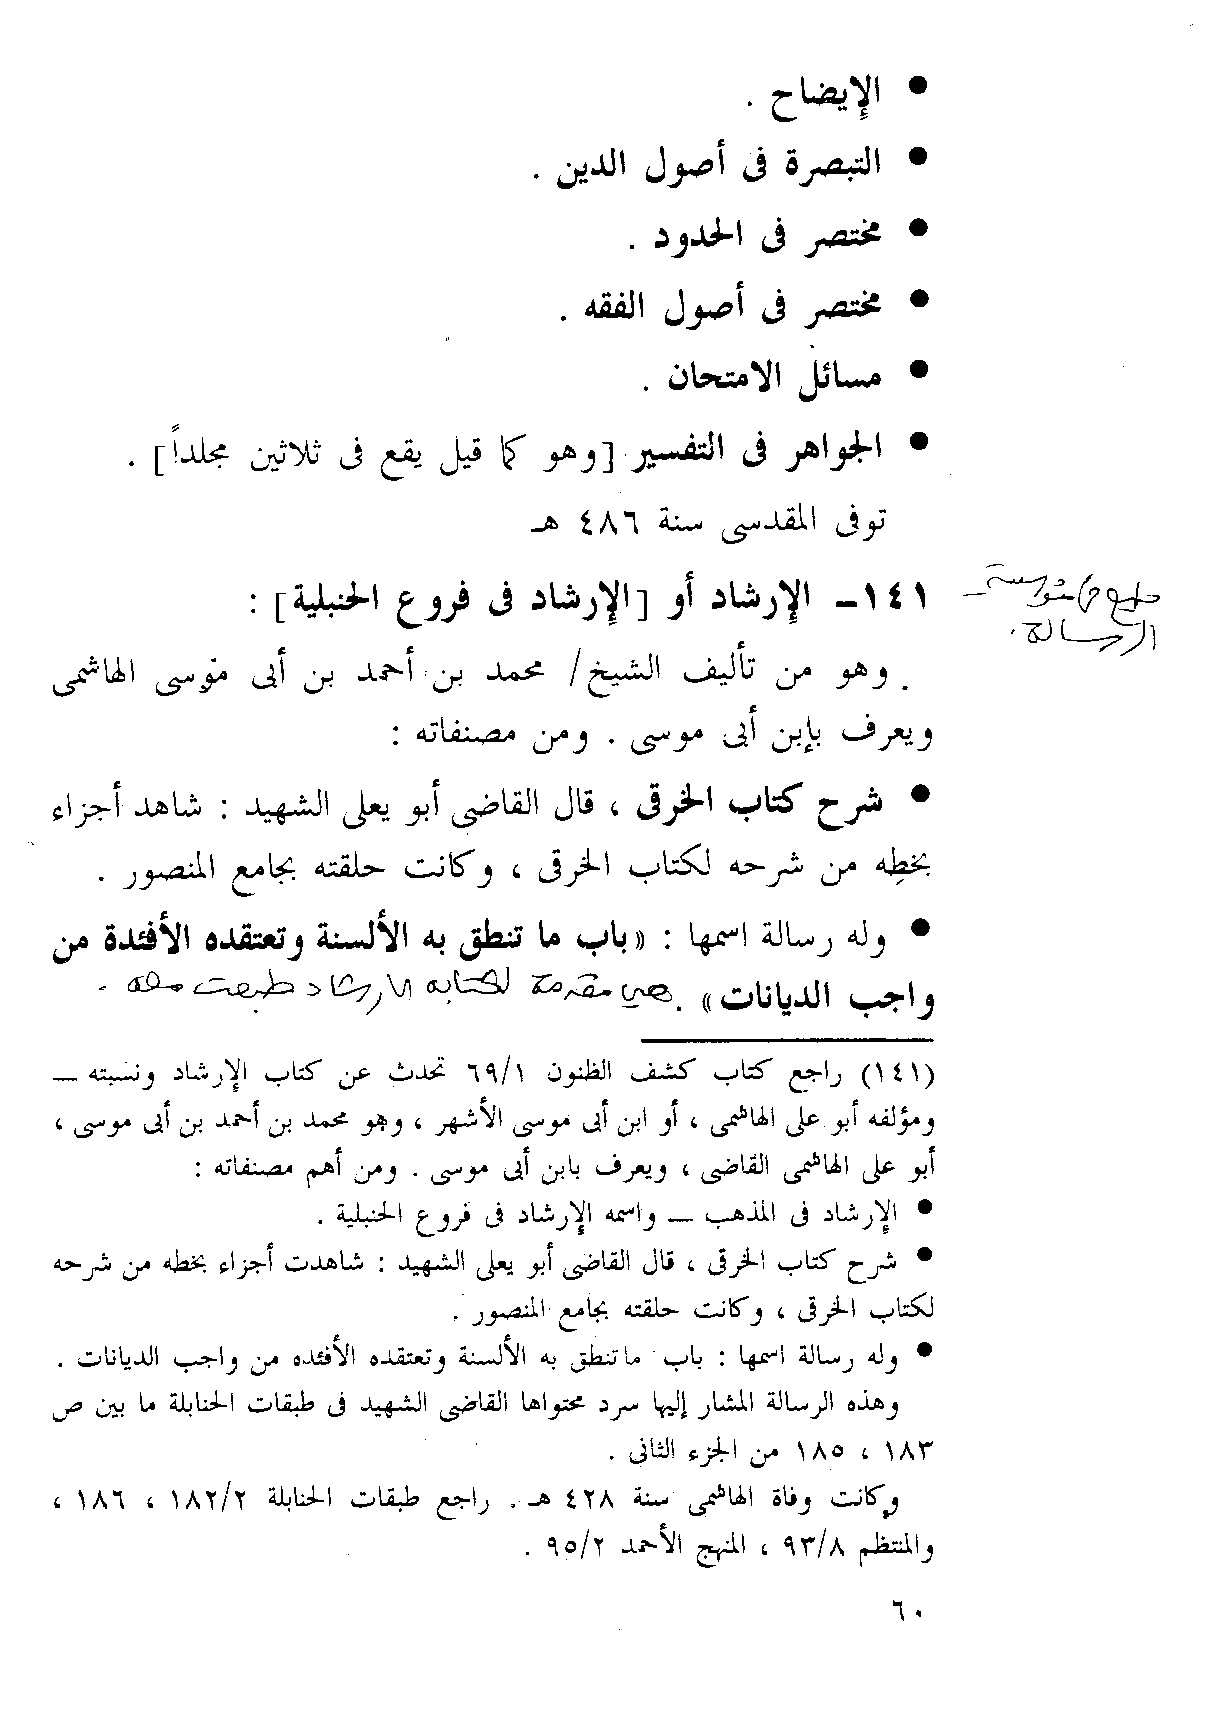 ● الإيضاح .
● التبصرة فى أصول الدين .
● مختصر فى الحدود .
● مختصر فى أصول الفقه .
● مسائل الامتحان .
● الجواهر فى التفسير [وهو كما قيل يقع فى ثلاثين مجلداً] .
توفى المقدسى سنة ٤٨٦ هـ
١٤١ـ الإرشاد أو [الإرشاد فى فروع الحنبلية] :
طبع في مؤسسة
الرسالة.
وهو من تأليف الشيخ/ محمد بن أحمد بن أبى موسى الهاشمى
ويعرف بإبن أبى موسى . ومن مصنفاته :
● شرح كتاب الخرقى ، قال القاضى أبو يعلى الشهيد : شاهد أجزاء
بخطِه من شرحه لكتاب الخرقى ، وكانت حلقته بجامع المنصور .
● وله رسالة اسمها : «باب ما تنطق به الألسنة وتعتقده الأفئدة من
واجب الديانات» . هي مقدمة لكتابه الارشاد طبعت معه .
(١٤١) راجع كتاب كشف الظنون ٦٩/١ تحدث عن كتاب الإرشاد ونسبته ــ
ومؤلفه أبو على الهاشمى ، أو ابن أبى موسى الأشهر ، وهو محمد بن أحمد بن أبى موسى ،
أبو على الهاشمى القاضى ، ويعرف بابن أبى موسى . ومن أهم مصنفاته :
● الإرشاد فى المذهب ــ واسمه الإرشاد فى فروع الحنبلية .
● شرح كتاب الخرقى ، قال القاضى أبو يعلى الشهيد : شاهدت أجزاء بخطه من شرحه
لكتاب الخرقى ، وكانت حلقته بجامع المنصور .
● وله رسالة اسمها : باب ماتنطق به الألسنة وتعتقده الأفئده من واجب الديانات .
وهذه الرسالة المشار إليها سرد محتواها القاضى الشهيد فى طبقات الحنابلة ما بين ص
١٨٣ ، ١٨٥ من الجزء الثانى .
وكانت وفاة الهاشمى سنة ٤٢٨ هـ . راجع طبقات الحنابلة ١٨٢/٢ ، ١٨٦ ،
والمنتظم ٩٣/٨ ، المنهج الأحمد ٩٥/٢ .
٦٠